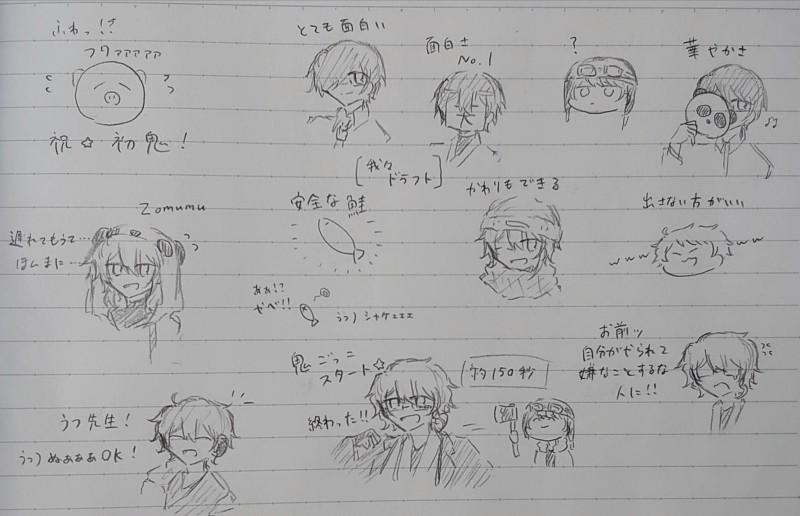 ふわっ!?
フワァァァァァ
祝☆初鬼!
とても面白い
面白さ
No.1
?
華やかさ
[我々
ドラフト]
Zomumu
遅れてもうて…
ほんまに…
安全な鮭
かわりもできる
出さない方がいい
www
ww
あぁ!?
やべ!!
うつ)シャケェェェ
鬼ごっこ
スタート☆
終わった!!
約150秒
お前ッ
自分がやられて
嫌なことするな
人に!!
うつ先生!
うつ)ぬぁぁぁOK!